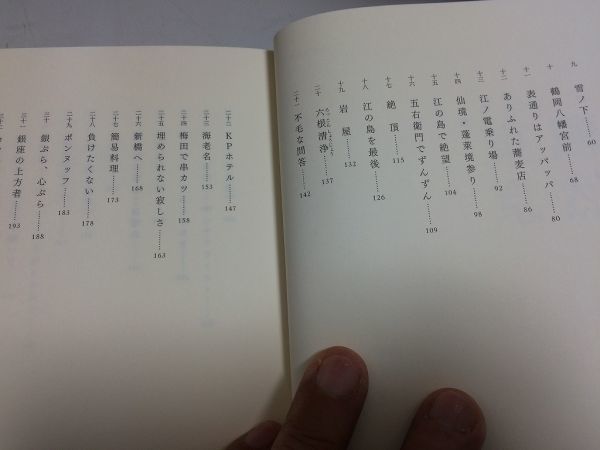 九 雪ノ下……60
十 鶴岡八幡宮前……68
十一 表通りはアッパッパ……80
十二 ありふれた蕎麦店……86
十三 江ノ電乗り場……92
十四 仙境・蓬萊境参り……98
十五 江の島で絶望……104
十六 五右衛門でずんずん……109
十七 絶頂……115
十八 江の島を最後……126
十九 岩屋……132
二十 六根清浄……137
二十一 不毛な問答……142
二十二 KPホテル……147
二十三 海老名……153
二十四 梅田で串カツ……158
二十五 埋められない寂しさ……163
二十六 新橋へ……168
二十七 簡易料理……173
二十八 負けたくない……178
二十九 ポンヌッフ……183
三十 銀ぶら、心ぶら……188
三十一 銀座の上方者……193
三十二